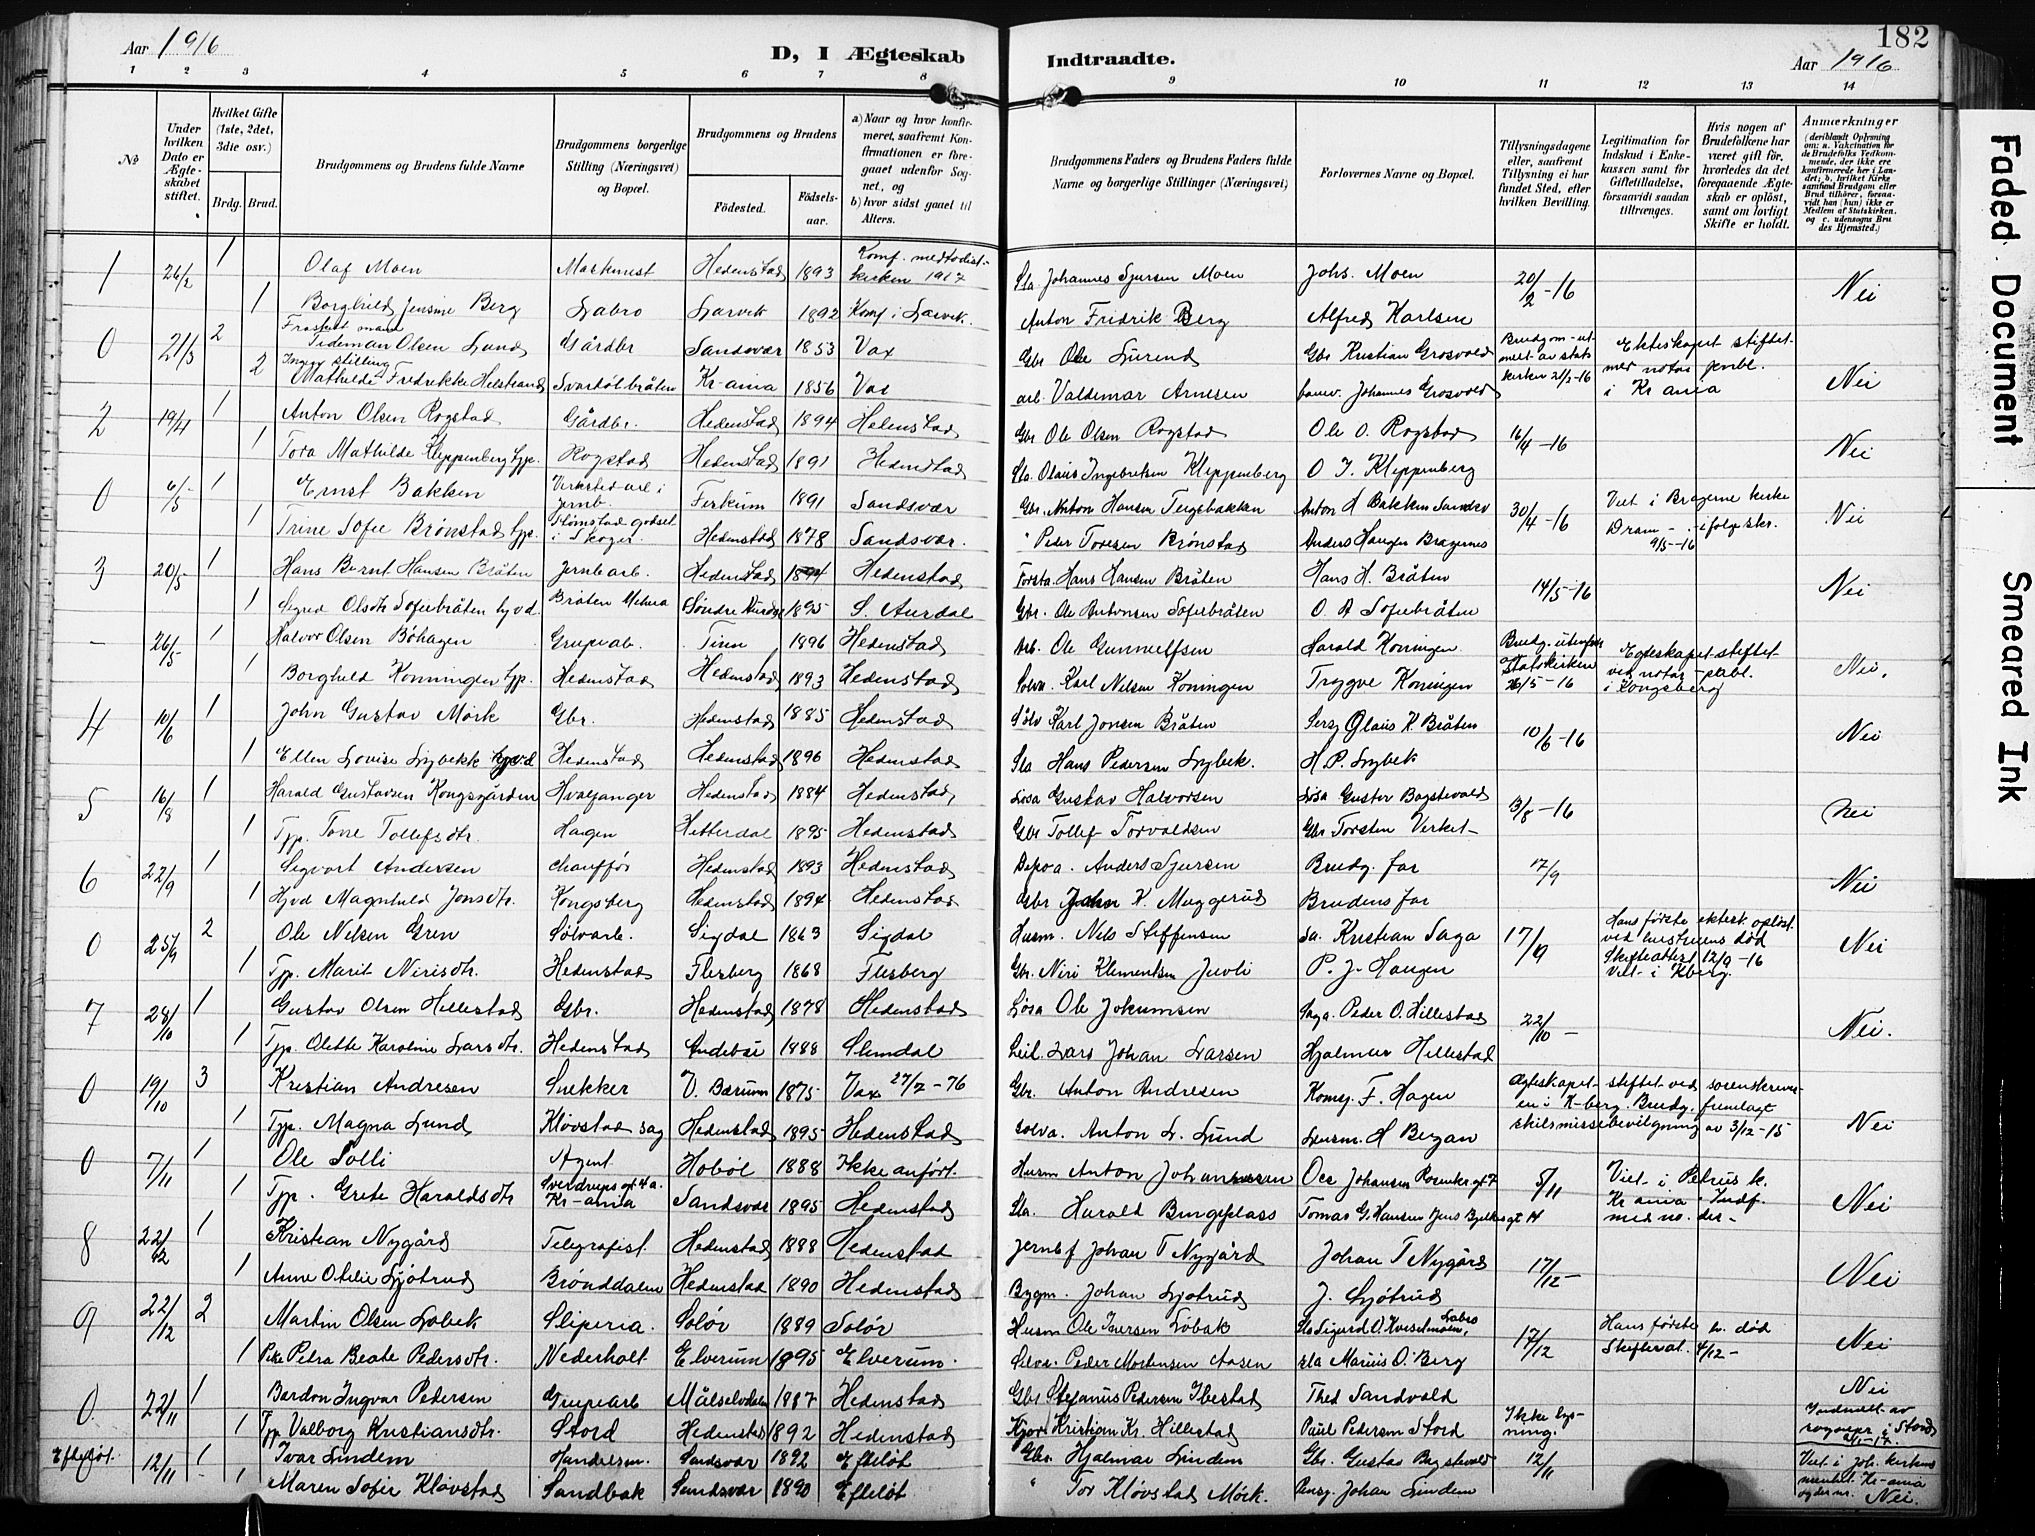 182
Aar 1916
D, I Ægteskab Indtraadte.
Aar 1916
1 2 3 4 5 6 7 8 9 10 11 12 13 14
No
Under hvilken Dato er Ægteskabet stiftet.
Hvilket Gifte (1ste, 2det, 3die osv.)
Brdg. Brud.
Brudgommens og Brudens fulde Navne
Brudgommens borgerlige Stilling (Næringsvei) og Bopæl.
Brudgommens og Brudens
Fødested. Fødsels-aar.
a) Naar og hvor konfirmeret, saafremt Konfirmationen er foregaaet udenfor Sognet, og
b) hvor sidst gaaet til Alters.
Brudgommens Faders og Brudens Faders fulde Navne og borgerlige Stillinger (Næringsvei)
Forlovernes Navne og Bopæl.
Tillysningsdagene eller, saafremt Tillysning ei har fundet Sted, efter hvilken Bevilling.
Legitimation for Indskud i Enkekassen samt for Giftetilladelse, forsaavidt saadan tiltrænges.
Hvis nogen af Brudefolkene har været gift før, hvorledes da det foregaaende Ægteskab er opløst, samt om lovligt Skifte er holdt.
Anmerkninger
(deriblandt Oplysning om: a. Vakcination for de Brudefolks Vedkommende, der ikke ere konfirmerede her i Landet; b. hvilket Kirkesamfund Brudgom eller Brud tilhører, forsaavidt han (hun) ikke er Medlem af Statskirken, og c. udensogns Brudes Hjemsted.)
1 26/2 1 Olaf Moen Maskinist Hedenstad 1893 Konf. metodistkirken 1917 Sla. Johannes Sjursen Moen Johs. Moen 20/2-16 Nei
1 Borghild Jensine Berg Labro Larvik 1892 Konf. i Larvik. Anton Fridrik Berg Alfred Karlsen
0 21/3 2 Fraskilt mand Tideman Olsen Lund Gårdbr Sandsvær 1853 Vax Gbr Ole Lurend Gbr Kristian Grosvold Brudgom utmelt av statskirken 21/2-16 Ekteskapet stiftet med notar publ. i Kr ania Nei
2 Ingen stilling Mathilde Fredrikke Helstrand Svartølbråten Kr-ania 1856 Vax arb. Valdemar Arnesen Johannes Grosvold
2 19/4 1 Anton Olsen Rogstad Gårdbr. Hedenstad 1894 Hedenstad Gbr Ole Olsen Rogstad Ole O. Rogstad 16/4-16 Nei
1 Tora Mathilde Kleppenberg typ. Rogstad Hedenstad 1891 Hedenstad Sla. Olaus Ingebretsen Kleppenberg O J. Kleppenberg
0 6/5 1 Ernst Bakken Verksted-arb i Jernb. Fiskum 1891 Sandsvær Gbr. Anton Hansen Teigsbakken Anton H Bakken Sandsv 30/4-16 Viet i Bragerne kirke Dram-. ifølge skr. 9/5-16 Nei
1 Trine Sofie Brønstad typ. Strømstad godset i Skoger. Hedenstad 1878 Sandsvær. " Peder Toresen Brønstad Anders Haugen Bragernes
3 20/5 1 Hans Bernt Hansen Bråten Jernbarb. Hedenstad 1894 Hedenstad Forsta. Hans Hansen Bråten Hans H. Bråten 14/5-16 Nei
1 Sigrid Olsdtr Soferbråten hyvd. Bråten Meheia Søndre Aurdal 1895 S. Aurdal Gbr. Ole Antonsen Soferbråten O. A Soferbråten
- 26/5 1 Halvor Olsen Bøhagen Grubeab. Tinn 1896 Hedenstad Arb. Ole Gunnulfsen Harald Koningen Brudg. utenfor Statskirken 26/5-16 Egteskapet stiftet ved notar-publ. i Kongsberg Nei.
1 Borghild Konningen typ. Hedenstad Hedenstad 1893 Hedenstad Sølva. Karl Nilsen Koningen Trygve Koningen
4 10/6 1 John Gustav Mørk Gbr. Hedenstad 1885 Hedenstad Sølv Karl Jonsen Bråten Serg Olaus K. Bråten 10/6-16 Nei
1 Ellen Lovise Lybekk hyvd Hedenstad Hedenstad 1896 Hedenstad Sla Hans Pedersen Lybek. H. P. Lybek
5 16/8 1 Harald Gustavsen Kongsgården Hvalfanger Hedenstad 1884 Hedenstad Løsa Gustav Halvorsen Løsa Gustav Bagstevold 3/8-16 Nei
1 Typ. Tone Tollefsdtr. Hagen Hitterdal 1895 Hedenstad Gbr Tollef Torvaldsen Gbr Torsten Verket-
6 22/9 1 Sigvart Andersen chauffør Hedenstad 1893 Hedenstad Anders Sjursen Brudg. far 17/9 Nei
1 Hyvd Magnhild Jonsdtr. Kongsberg Hedenstad 1894 Hedenstad Gbr John K. Muggerud Brudens far
0 25/9 2 Ole Nilsen Gren Sølvarb. Sigdal 1863 Sigdal Husm. Nils Steffensen Sa. Kristian Saga 17/9 Hans første ektesk. opløst ved hustruens død Skifteattest 12/9-16 Viet i Kberg. Nei
1 Typ. Marit Nirisdtr. Hedenstad Flesberg 1868 Flesberg Gbr. Niri Klementsen Juvli P. J. Haugen
7 28/10 1 Gustav Olsen Hillestad Gbr. Hedenstad 1878 Hedenstad Løsa Ole Jokumsen Saga. Peder O. Hillestad 22/10- Nei.
1 Typ. Olette Karoline Larsdtr. Hedenstad Andebu 1888 Slemdal Leil. Lars Johan Larsen Hjalmar Hillestad
0 19/10 3 Kristian Andresen Snekker V. Bærum 1875 Vax 27/7-76 Gbr. Anton Andresen Komsj. F. Hagen Ægteskapet stiftet ved sorenskriveren i K-berg. Brudg. fremlagt skilsmissebevilgning av 3/12-15 Nei
1 Typ. Magna Lund Kløvstad sag Hedenstad 1895 Hedenstad Sølva. Anton L. Lund Lensm. H Bergan
0 7/11 1 Ole Solli Agent Hobøl 1888 Ikke anført. Husm Anton Johannessen Osc Johansen Rosenkr.gt 7 5/11 Viet i Petrus k. Kr ania. Indf. med no. der- Nei
1 Typ. Grete Haraldsdtr Sverdrups gt 4a. Kr-ania Sandsvær 1895 Hedenstad Sla. Harald Bingeplass Tomas G. Hansen Jens Bjelkesgt 14
8 22/12 1 Kristian Nygård Telegrafist. Hedenstad 1888 Hedenstad Jernbf Johan T Nygård Johan T Nygård 17/12- Nei
1 Anne Otelie Ljøtrud Brønddalen Hedenstad 1890 Hedenstad Bygm. Johan Ljøtrud J. Ljøtrud
9 22/12 2 Martin Olsen Løbek Sliperia. Solør 1889 Solør Husm Ole Iversen Løbak Sla Sigurd O. Kvislmoen, Labro 17/12 Hans første h. død Skifteat. 4/12- Nei
1 Pike Petra Beate Pedersdtr. Nederholt Elverum 1895 Elverum. Selva. Peder Mortensen Aasen sla Marius O. Berg
0 22/11 1 Bardon Ingvar Pedersen Grupearb Målselvdalen 1887 Hedenstad Gbr Stefanus Pedersen Ibestad Thed Sandvold Ikke lysning. Nei
1 Typ Valborg Kristiansdtr. Stord Hedenstad 1892 Hedenstad Kjør. Kristian Kr. Hillestad Paul Pedersen Stord Indmelt av sogнepr. i Stord
Efteløt. 12/11 1 Ivar Lindem Handelsm. Sandsvær 1892 Efteløt Gbr. Hjalmar Lindem Gbr. Gustav Bagstevold 12/11 Viet i Joh. kirkens menhet. Kr-ania og der nr. Nei.
1 Maren Sofie Kløvstad Sandbæk Sandsvær 1890 Efteløt " Tor Kløvstad Mørk. Pensj. Johan Lindem
Faded Document
Smeared Ink